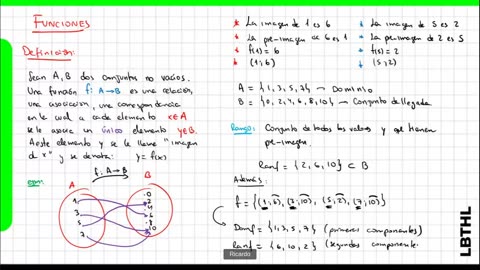 FUNCIONES
Definición:
Sean A, B dos conjuntos no vacíos.
Una función f: A→B es una relación,
una asociación, una correspondencia
en la cual a cada elemento x∈A
se le asocia un único elemento y∈B.
A este elemento y se le llama "imagen
de x" y se denota: y = f(x)
f: A→B
A
B
1
3
5
7
0
2
4
6
8
10
* La imagen de 1 es 6
* La pre-imagen de 6 es 1
* f(1) = 6
* (1,6)
* La imagen de 5 es 2
* La pre-imagen de 2 es 5
* f(5) = 2
* (5,2)
A = {1,3,5,7} → Dominio
B = {0,2,4,6,8,10} → Conjunto de llegada
Rango: Conjunto de todos los valores y que tienen
pre-imagen.
Ranf = {2,6,10} ⊂ B
Además:
f = {(1,6), (3,10), (5,2), (7,10)}
Domf = {1,3,5,7} (primeras componentes)
Ranf = {6,10,2} (segundas componentes)
Ricardo
LBTHL